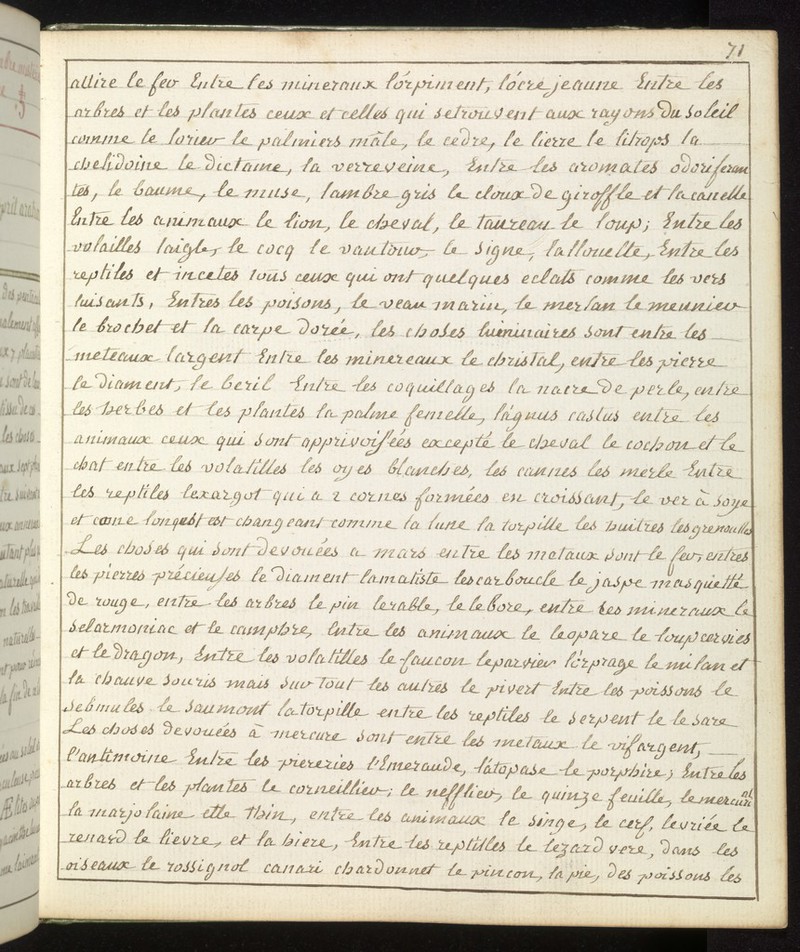 71
attire le fer Entre les mineraux l'orpiment, l'ocre jeaune Entre les
arbres et les plantes ceux et celles qui setrouvent aux rayons Du Soleil
comme le lorier le palmiers mâle, le cedre, le lierre le litrops la
chelidoine le dictame, la verreveine, Entre les aromates odoriferan
tes, le baume, le musc, lambre gris le cloux de giroffle et la canelle
Entre les animaux le lion, le cheval, le taureau le loup; Entre les
volailles laigle, le cocq le vautour, le signe, lallouette, Entre les
reptiles et incetes tous ceux qui ont quelques eclats comme les vers
luisants, Entres les poisons, le veau marin, le merlan le meunier
le brochet et la carpe dorée, les choses luminaires sont entre les
meteaux largent Entre les minereaux le christal, entre les pierre
le diament, le beril Entre les coquillages la nacre de perle, entre
les herbes et les plantes la palme femelle, l'agnus castus entre les
animaux ceux qui sont apprivoisées excepté le cheval le cochon et le
chat entre les volatilles les oyes blanches, les cannes les merle Entre
les reptiles lexargot qui a 2 cornes formées en croissant, le ver à soye
et come changeant comme la lune la torpille les huitres les grenouilles
Les choses qui sont devouées a mars entre les mataux sont le fer, entres
les pierres précieuses le diament lamatiste lescarboucle le jaspe masquetté
de rouge, entre les arbres le pin lerable, le lebore, entre les mineraux le
selarmoniac et le camphre, Entre les animaux le leopare le loup cervies
et le dragon, Entre les volatilles le faucon leparvier l'orprage le milan et
la chauve souris mais sur tout les autres le pivert Entre les poissons le
sebmules le saumont la torpille entre les reptiles le serpent le lesare
Les choses devouées à mercure sont entre les metaux le vif argent,
l'antimoine Entre les piereries l'Emeraude, latopase le porphire; Entre les
arbres et les plantes le corneillier; le nefflier, le quinze feuille, le mercuri
al
la marjolaine ette thin, entre les animaux le singe, le cerf, levriée le
renard le lievre, et la hiere, Entre les reptilles le lezard vere, dans les
oiseaux le rossignol canari chardonnet le pincon, la pie, des poissons les